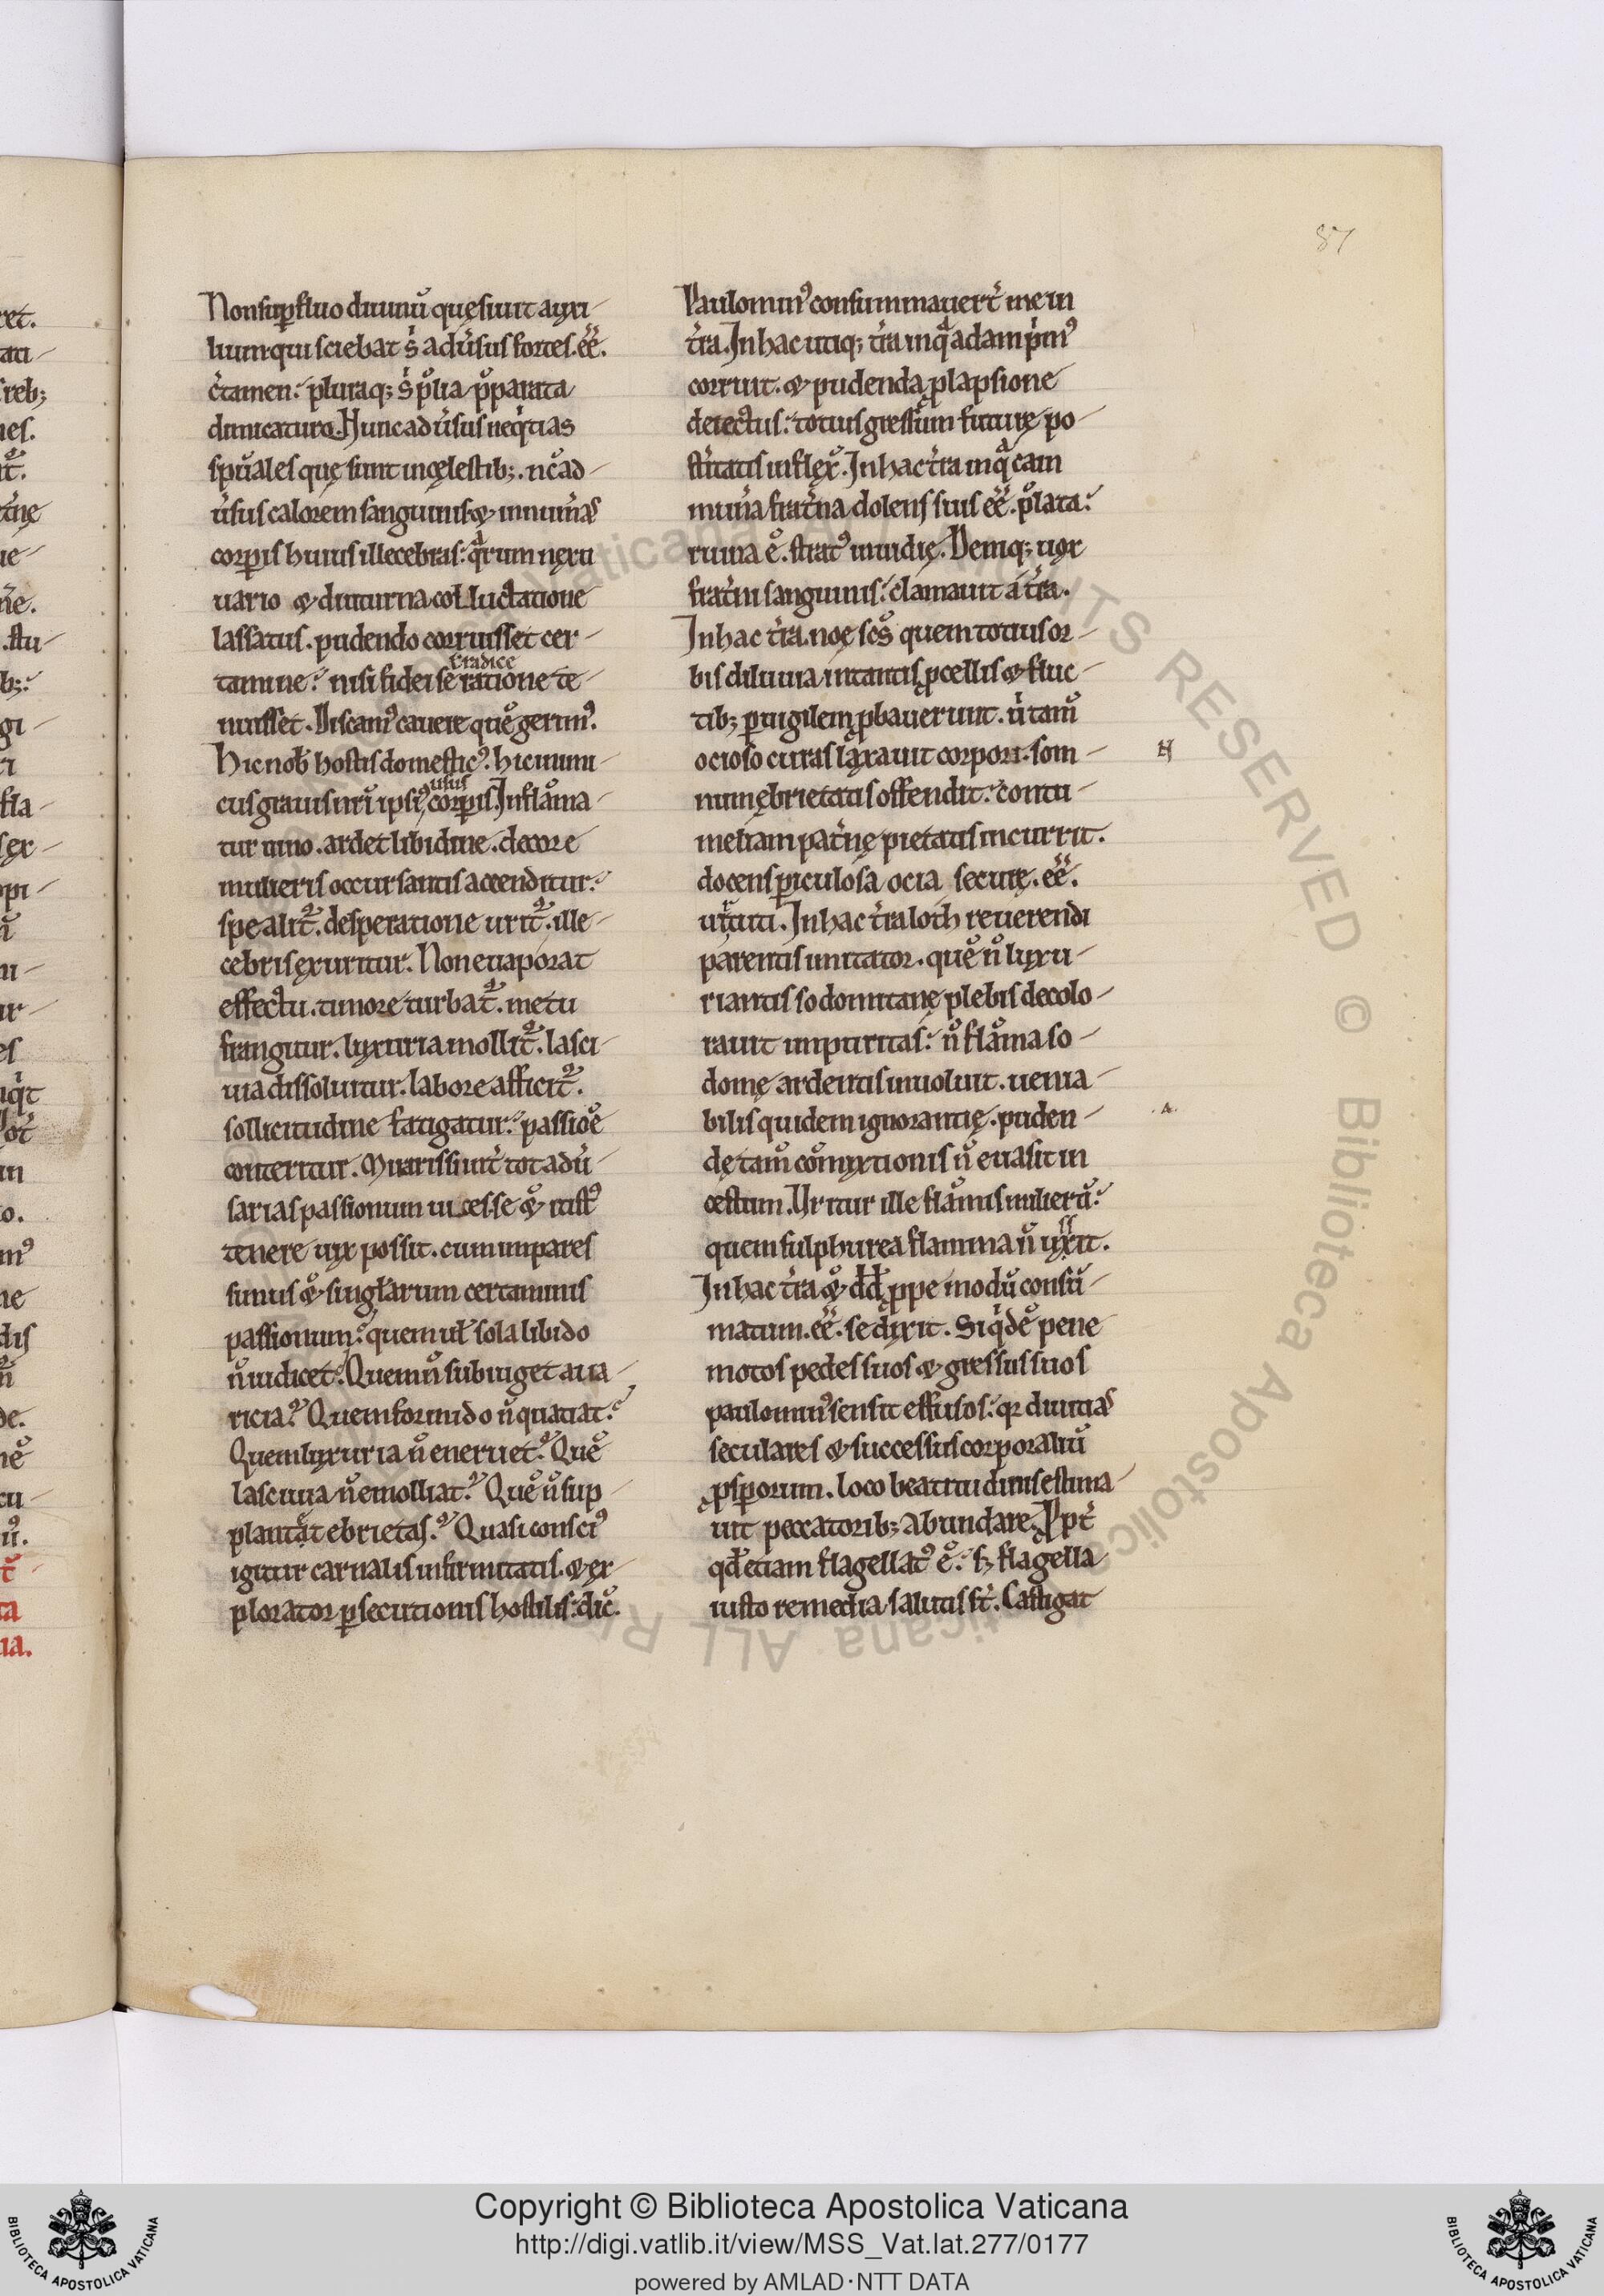 87
Nonsuꝑfluo diuinū quęsiuit auxi-
liumqui sciebat sͥ aduͥsus fortes.ee͂.
c̾tamen: pluraq; sͥ p̄lia p̄parata
dimicaturo. Hunc aduͥsus neq̍tias
sp̄uales quę sunt incęlestib;. nc̄ ad-
uͥsus calorem sanguinis. & innum̾as
corꝑis huius illecebras: qͣrum nexu
uario & diuturna colluctatione
lassatus. pudendo corruisset cer-
tamine: nisi fidei se ratione te-
eradice
nuisset. Discam⁹ cauere quē gerim⁹.
Hic nob̄ hostis domestic⁹. hic inimi-
cus grauis nr̄i ipsi⁹ corꝑis. Inflāma-
usus
tur uino. ardet libidine. decore
mulieris occursantis accenditur:
spe alit̾. desperatione urit̾. ille-
cebris exuritur. Non euaporat
effectu. timore turbat̾. metu
frangitur. luxuria mollit̾. lasci-
uia dissoluitur. labore afficit̾.
sollicitudine fatigatur: passiōe
conteritur. Miraris siint̾ tot adu̾-
sarias passionum uices. se & iust⁹
tenere uix possit. cum impares
simus & singl̄arum certaminis
passionum: quem ul̄ sola libido
n̄ iudicet: Quem n̄ subiuget aua-
ricia? Quem formido n̄ quatiat:
Quem luxuria n̄ eneruet? Quē
lasciuia n̄ emolliat? Quē n̄ sup-
plantat ebrietas? Quasi consci⁹
igitur carnalis infirmitatis. & ex-
plorator ꝑsecutionis hostilis: dic̄.
Paulomin⁹ consummauert̾ me in
tr̾a. In hac utiq; tr̾a in qͣ adam p̍m⁹
corruit. & pudenda ꝓlapsione
detectus: totius gressum futurę po-
st̾itatis inflex̄. In hac tr̾a in qͣ cain
mun̾a frat̾na dolens suis ee͂. p̄lata:
ruina ē. strat⁹ inuidię. Deniq; uox
frat̾ni sanguinis: clamauit a tr̾a.
In hac tr̾a. noe sc̄s quem totius or-
bis diluuia intantis ꝓcellis & fluc-
tib; ꝑuigilem ꝓbauerunt. ūͥ tam̄
ocioso curas laxauit corpori. som-
H
num ębrietatis offendit: contu-
meliam pat̾nę pietatis incurrit.
docens ꝑiculosa ocia securę. ee͂.
uͥrtuti. In hac tr̾a loth reuerendi
parentis imitator. quē n̄ luxu-
riantis sodomitanę plebis decolo-
rauit impuritas: n̄ flāma so-
domę ardentis inuoluit. uenia-
bilis quidem ignorantię. puden-
.A.
dę tam̄ cōmixtionis n̄ euasit in
cestum. Uritur ille flāmis mulierū:
quem sulphurea flamma n̄ uxit.
ss
In hac tr̾a & dd̄ ꝓpe modū consū-
matum. ee͂. se dixit. Siq̍dē pene
motos pedes suos & gressus suos
paulomin⁹ sensit effusos: qr diuitias
seculares & successus corporaliū
ꝓsꝑorum. loco beatitudinis estima-
uit peccatorib; abundare. Ꝓpt̾
qd̄ etiam flagellat⁹ ē: sꝫ flagella
iusto remedia salutis st̾. Castigat
Copyright © Biblioteca Apostolica Vaticana
http://digi.vatlib.it/view/MSS_Vat.lat.277/0177
powered by AMLAD·NTT DATA